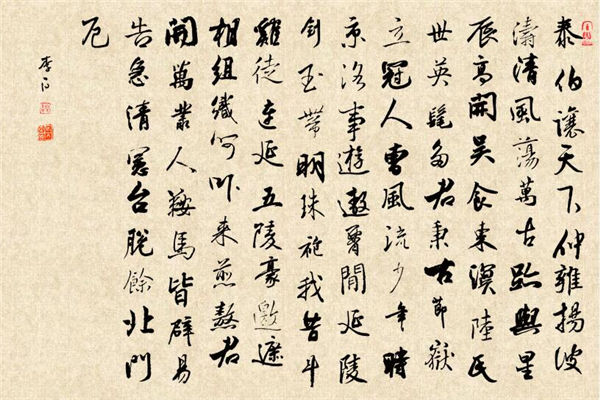 泰伯讓天下仲雍揚波
濤清風蕩萬古跡與星
辰高開吳食東溟陸氏
世英髦多君秉古節嶽
立冠人曹風流少年時
京洛事遊遨腰間延陵
劍玉帶明珠袍我昔斗
雞徒連延五陵豪邀遮
相組織呵吓来煎熬君
開萬叢人鞍馬皆辟易
告急清憲台脫餘北門
厄
李白